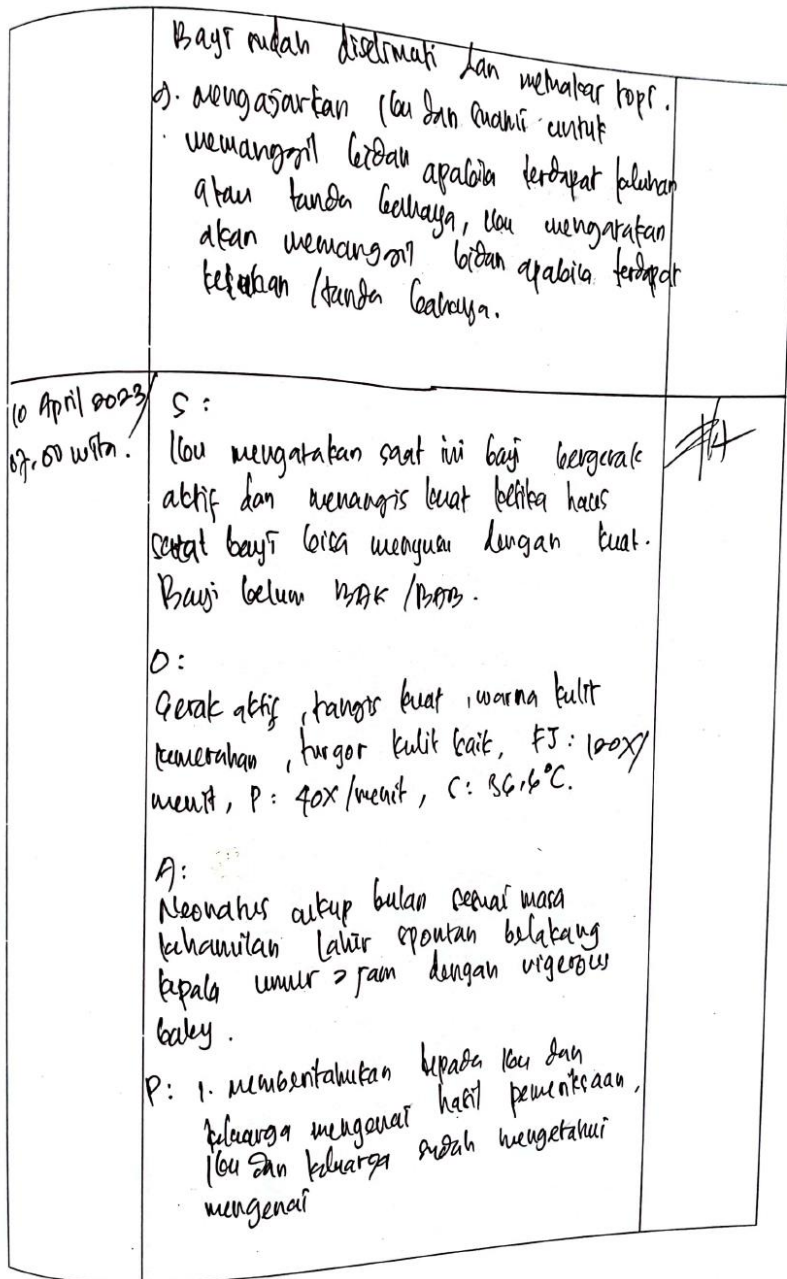 Bayi sudah diselimuti dan memakai topi.
9. mengajarkan ibu dan suami untuk
memanggil bidan apabila terdapat keluhan
atau tanda bahaya, ibu mengatakan
akan memanggil bidan apabila terdapat
keluhan / tanda bahaya.
10 April 2023/
07.50 wita.
S:
Ibu mengatakan saat ini bayi bergerak
aktif dan menangis kuat ketika haus
saat bayi bisa menyusu dengan kuat.
Bayi belum BAK / BAB.
O:
Gerak aktif, tangis kuat, warna kulit
kemerahan, turgor kulit baik, FJ: 120x/
menit, P: 40x/menit, S: 36,6°C.
A:
Neonatus cukup bulan sesuai masa
kehamilan lahir spontan belakang
kepala umur 2 jam dengan vigerous
baby.
P: 1. memberitahukan kepada ibu dan
keluarga mengenai hasil pemeriksaan,
ibu dan keluarga sudah mengetahui
mengenai